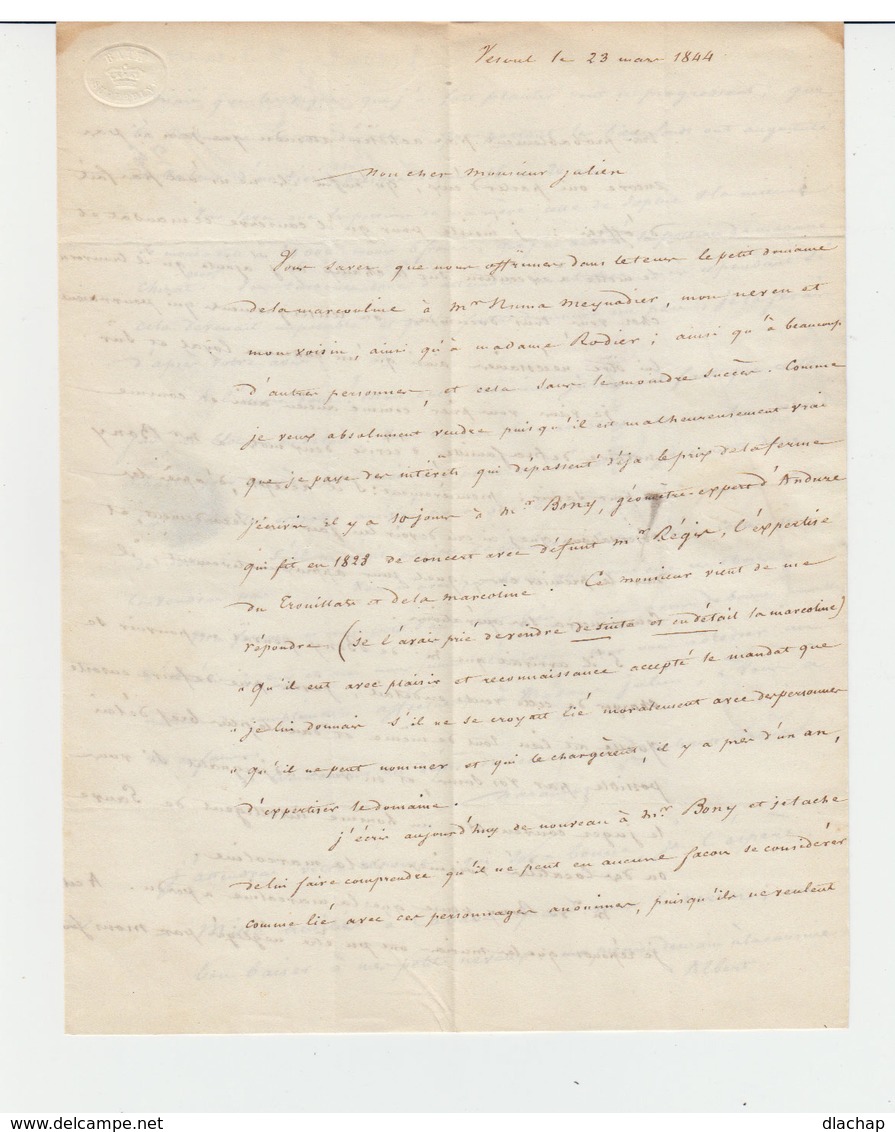 BATH
Vesoul le 23 mars 1844
Mon cher Monsieur Julien
Vous savez que nous offrimes dans le temps le petit domaine
de la marcouline à Mr Numa Meynadier, mon neveu et
mon voisin, ainsi qu'à madame Rodier; ainsi qu'à beaucoup
d'autres personnes, et cela sans le moindre succès. Comme
je veux absolument vendre puisqu'il est malheureusement vrai
que je paye des intérêts qui dépassent déja le prix de la ferme
j'écrivis il y a 10 jours à Mr. Bony, géomètre-expert d'Anduze
qui fit en 1828 de concert avec défunt Mr Régis, l'expertise
du Trouillas et de la marcoline. Ce monsieur vient de me
répondre (je l'avais prié de vendre de suite et en détail la marcoline)
" qu'il eut avec plaisir et reconnaissance accepté le mandat que
" je lui donnais s'il ne se croyait lié moralement avec des personnes
" qu'il ne peut nommer et qui le chargèrent, il y a près d'un an,
d'expertiser le domaine.
j'écris aujourd'huy de nouveau à Mr. Bony et je tache
de lui faire comprendre qu'il ne peut en aucune façon se considérer
comme lié avec ces personnages anonimes, puisqu'ils ne veulent
delcampe.net
dlachap